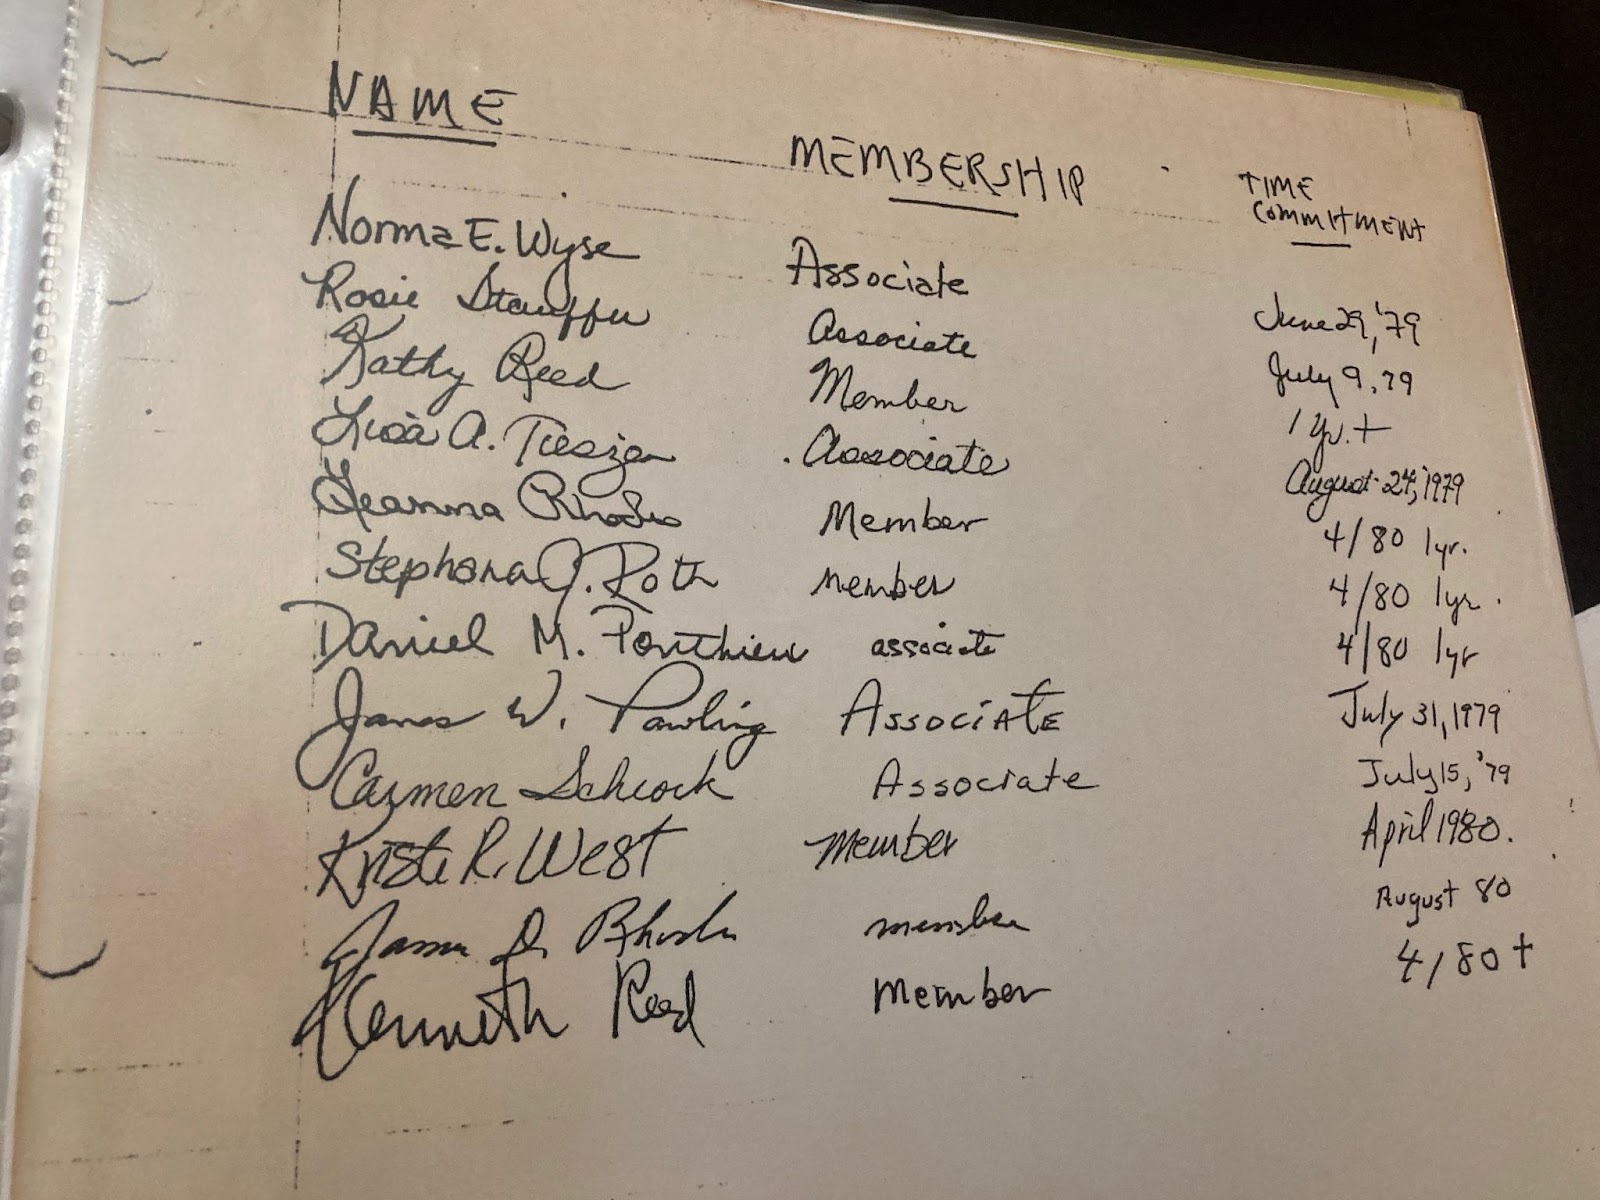 NAME MEMBERSHIP TIME COMMITMENT
Norma E. Wyse Associate June 29, '79
Rosie Stauffer Associate July 9, 79
Kathy Reed Member 1 yr. +
Lisa A. Tieszen Associate August 24, 1979
Jeanna Rhodes Member 4/80 1yr.
Stephana J. Roth member 4/80 1yr.
Daniel M. Ponthieu associate 4/80 1yr
James W. Pawling Associate July 31, 1979
Carmen Schrock Associate July 15, '79
Kriste R. West Member April 1980.
James D. Rhodes member August 80
Kenneth Reed Member 4/80 +